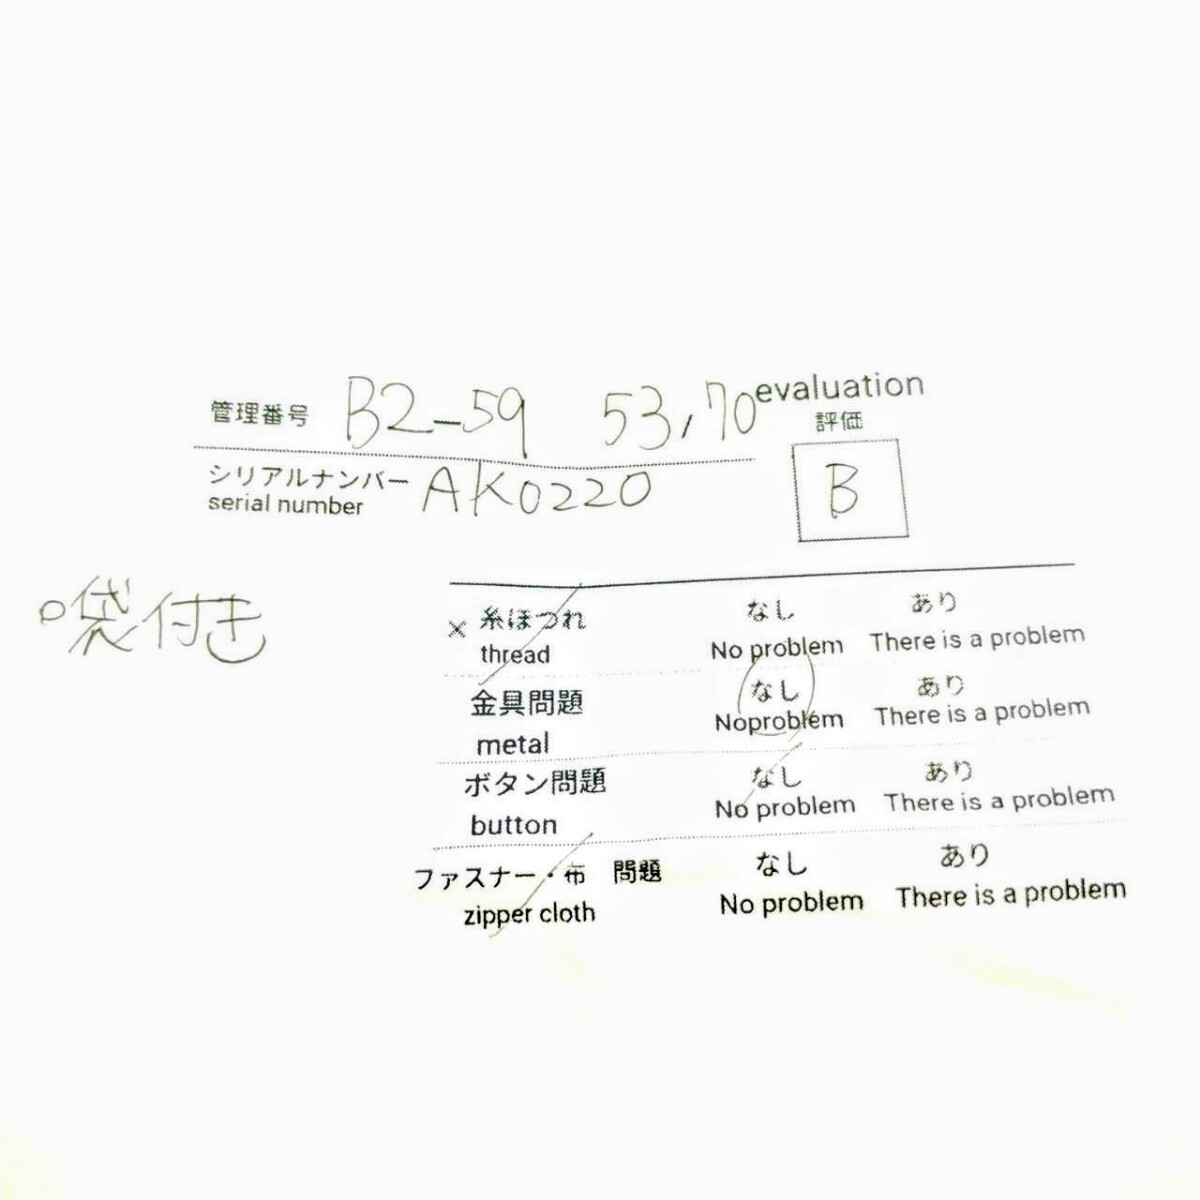 管理番号 B2-59 53,70
evaluation
評価
B
シリアルナンバー AK0220
serial number
袋付き
× 糸ほつれ なし あり
thread No problem There is a problem
金具問題 なし あり
metal Noproblem There is a problem
ボタン問題 なし あり
button No problem There is a problem
ファスナー・布 問題 なし あり
zipper cloth No problem There is a problem